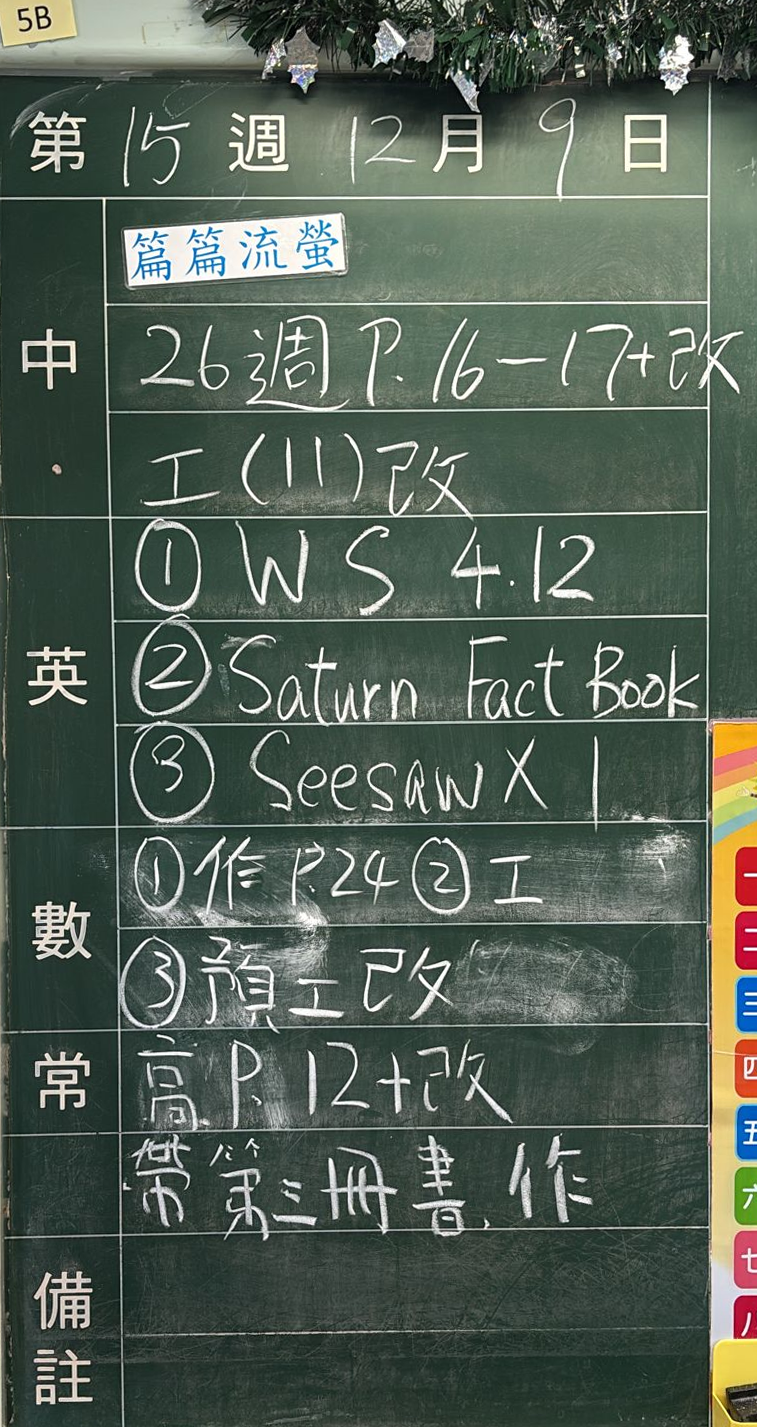 5B
第 15 週 12 月 9 日
中
篇篇流螢
26週 P. 16-17+改
工(11)改
英
① WS 4.12
② Saturn Fact Book
③ Seesaw X 1
數
①作 P.24 ②工
③預工改
常
高 P. 12+改
帶第三冊書、作
備註
一
二
三
四
五
六
七
八